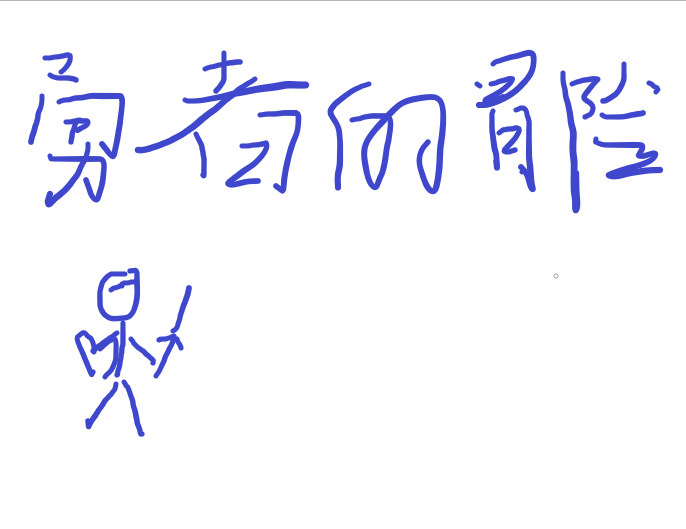 勇者的冒险